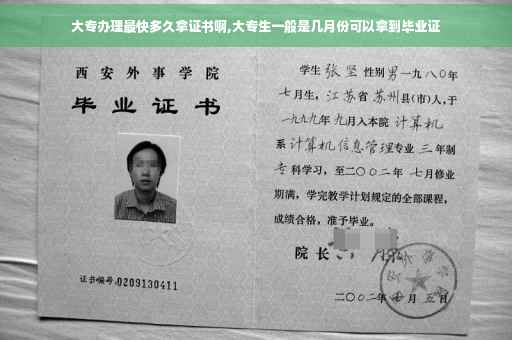 大专办理最快多久拿证书啊,大专生一般是几月份可以拿到毕业证
西安外事学院
毕业证书
证书编号:0209130411
学生 张坚 性别 男 一九八〇年
七月生, 江苏省 苏州县(市)人,于
一九九九年 九月入本院 计算机
系 计算机信息管理专业 三 年制
专 科学习，至二〇〇二年 七月修业
期满，学完教学计划规定的全部课程，
成绩合格，准予毕业。
院长
二〇〇二年 月 五日